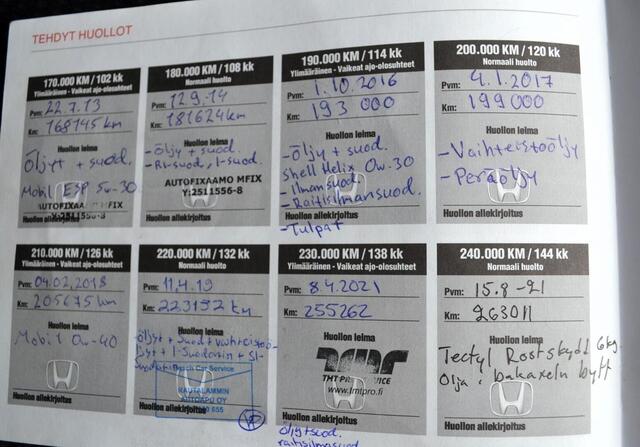 TEHDYT HUOLLOT
170.000 KM / 102 kk
Ylimääräinen - Vaikeat ajo-olosuhteet
Pvm: 22.7.13
Km: 168145 km
Huollon leima
Öljyt + suod.
Mobil ESP 5w-30
AUTOFIXAAMO MFIX
Y:2511556-8
Huollon allekirjoitus
180.000 KM / 108 kk
Normaali huolto
Pvm: 12.9.14
Km: 181624km
Huollon leima
- Öljy + suod.
- Rr-suod, I-suod.
AUTOFIXAAMO MFIX
Y:2511556-8
Huollon allekirjoitus
190.000 KM / 114 kk
Ylimääräinen - Vaikeat ajo-olosuhteet
Pvm: 1.10.2016
Km: 193 000
Huollon leima
- Öljy + suod.
Shell Helix 0w-30
- Ilmansuod.
- Raitisilmansuod.
Huollon allekirjoitus
- Tulpat
200.000 KM / 120 kk
Normaali huolto
Pvm: 4.1.2017
Km: 199000
Huollon leima
- Vaihteistoöljy
- Peräöljy
Huollon allekirjoitus
210.000 KM / 126 kk
Ylimääräinen - Vaikeat ajo-olosuhteet
Pvm: 04.02.2018
Km: 205675 km
Huollon leima
Mobil 0w-40
Huollon allekirjoitus
220.000 KM / 132 kk
Normaali huolto
Pvm: 11.4.19
Km: 223192 km
Huollon leima
- Öljyt + suod + vaihteistoö-
ljyt + I-Suodatin + SI-
Suodatin
Bosch Car Service
RAUTALAMMIN
AUTOAPU OY
Huollon allekirjoitus
230.000 KM / 138 kk
Ylimääräinen - Vaikeat ajo-olosuhteet
Pvm: 8.4.2021
Km: 255262
Huollon leima
TMT
www.tmtpro.fi
Huollon allekirjoitus
Öljytsuod.
raitisilmansuod
240.000 KM / 144 kk
Normaali huolto
Pvm: 15.8-21
Km: 263011
Huollon leima
Tectyl Rostskydd 6kg.
Olja i bakaxeln bytt
Huollon allekirjoitus